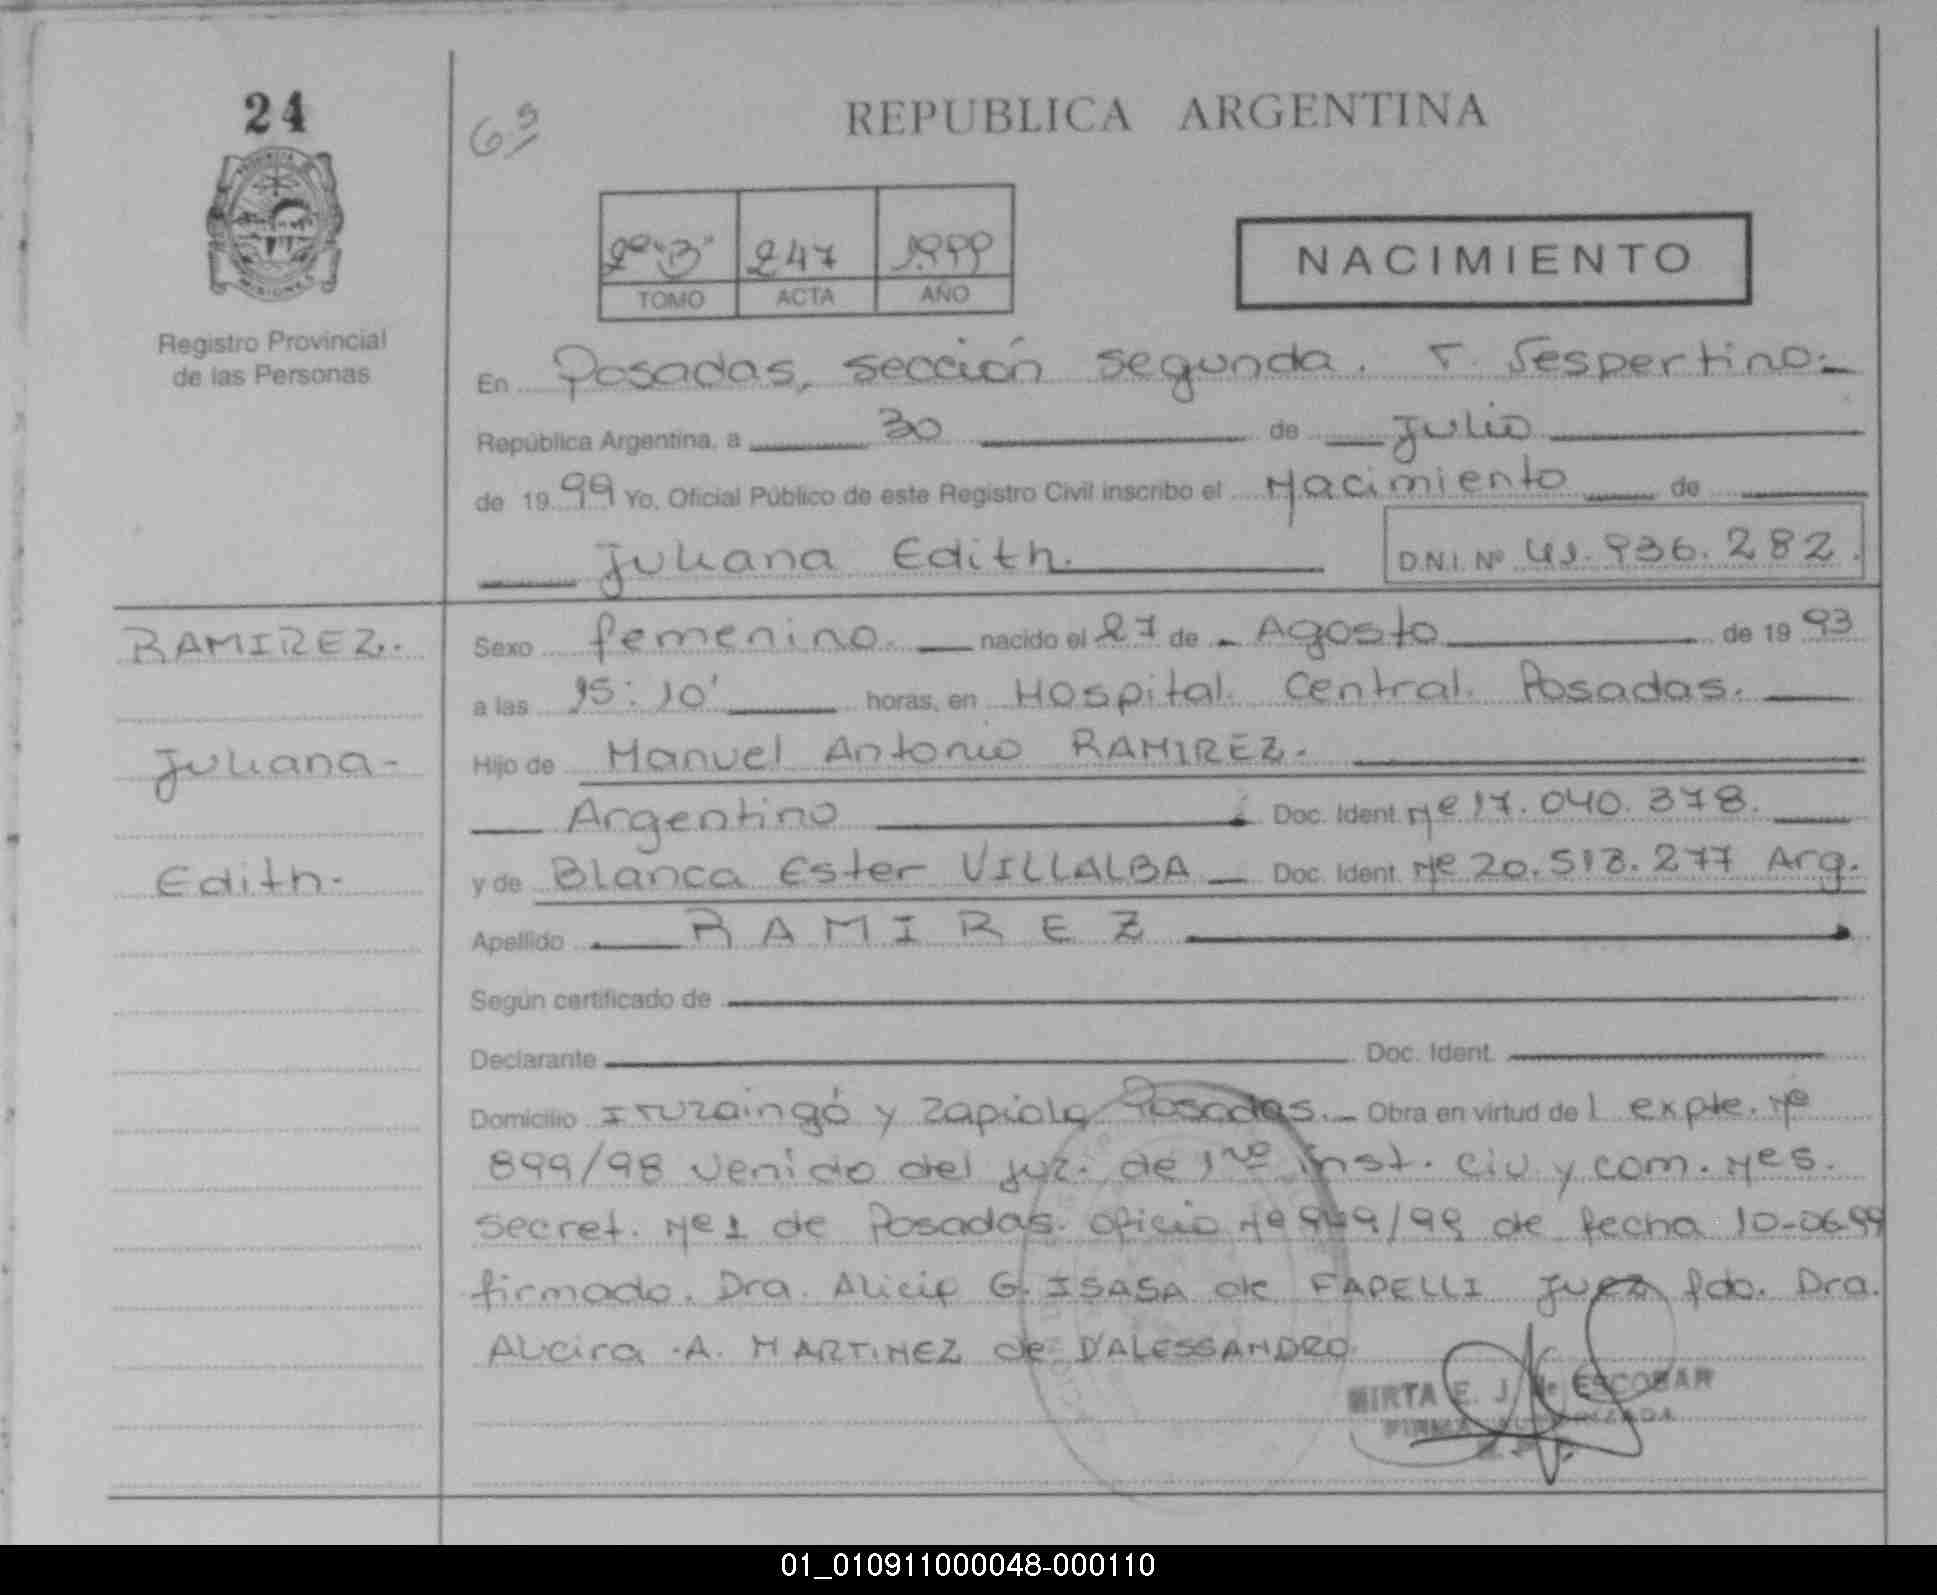 24
63
REPUBLICA ARGENTINA
2º "B" 247 1999
TOMO ACTA AÑO
NACIMIENTO
Registro Provincial
de las Personas
En Posadas, sección segunda. T. Vespertino.-
República Argentina, a 30 de Julio
de 1999 Yo, Oficial Público de este Registro Civil inscribo el Nacimiento de
Juliana Edith. D.N.I. Nº 41.936.282.
RAMIREZ.
Juliana-
Edith.-
Sexo femenino. nacido el 27 de Agosto de 1993
a las 15:10' horas, en Hospital Central Posadas.
Hijo de Manuel Antonio RAMIREZ.
Argentino Doc. Ident. Nº 17.040.378.
y de Blanca Ester VILLALBA Doc. Ident. Nº 20.518.277 Arg.
Apellido RAMIREZ
Según certificado de
Declarante Doc. Ident.
Domicilio Ituzaingó y Zapiola Posadas.- Obra en virtud del expte. Nº
899/98 venido del juz. de 1ra inst. civ y com. Nº 5.
Secret. Nº 1 de Posadas. oficio Nº 949/99 de fecha 10-06-99
firmado. Dra. Alicia G. ISASA de FAPELLI Juez fdo. Dra.
Alcira A. MARTINEZ de D'ALESSANDRO.
MIRTA E. J. de ESCOBAR
FIRMA AUTORIZADA
01_010911000048-000110